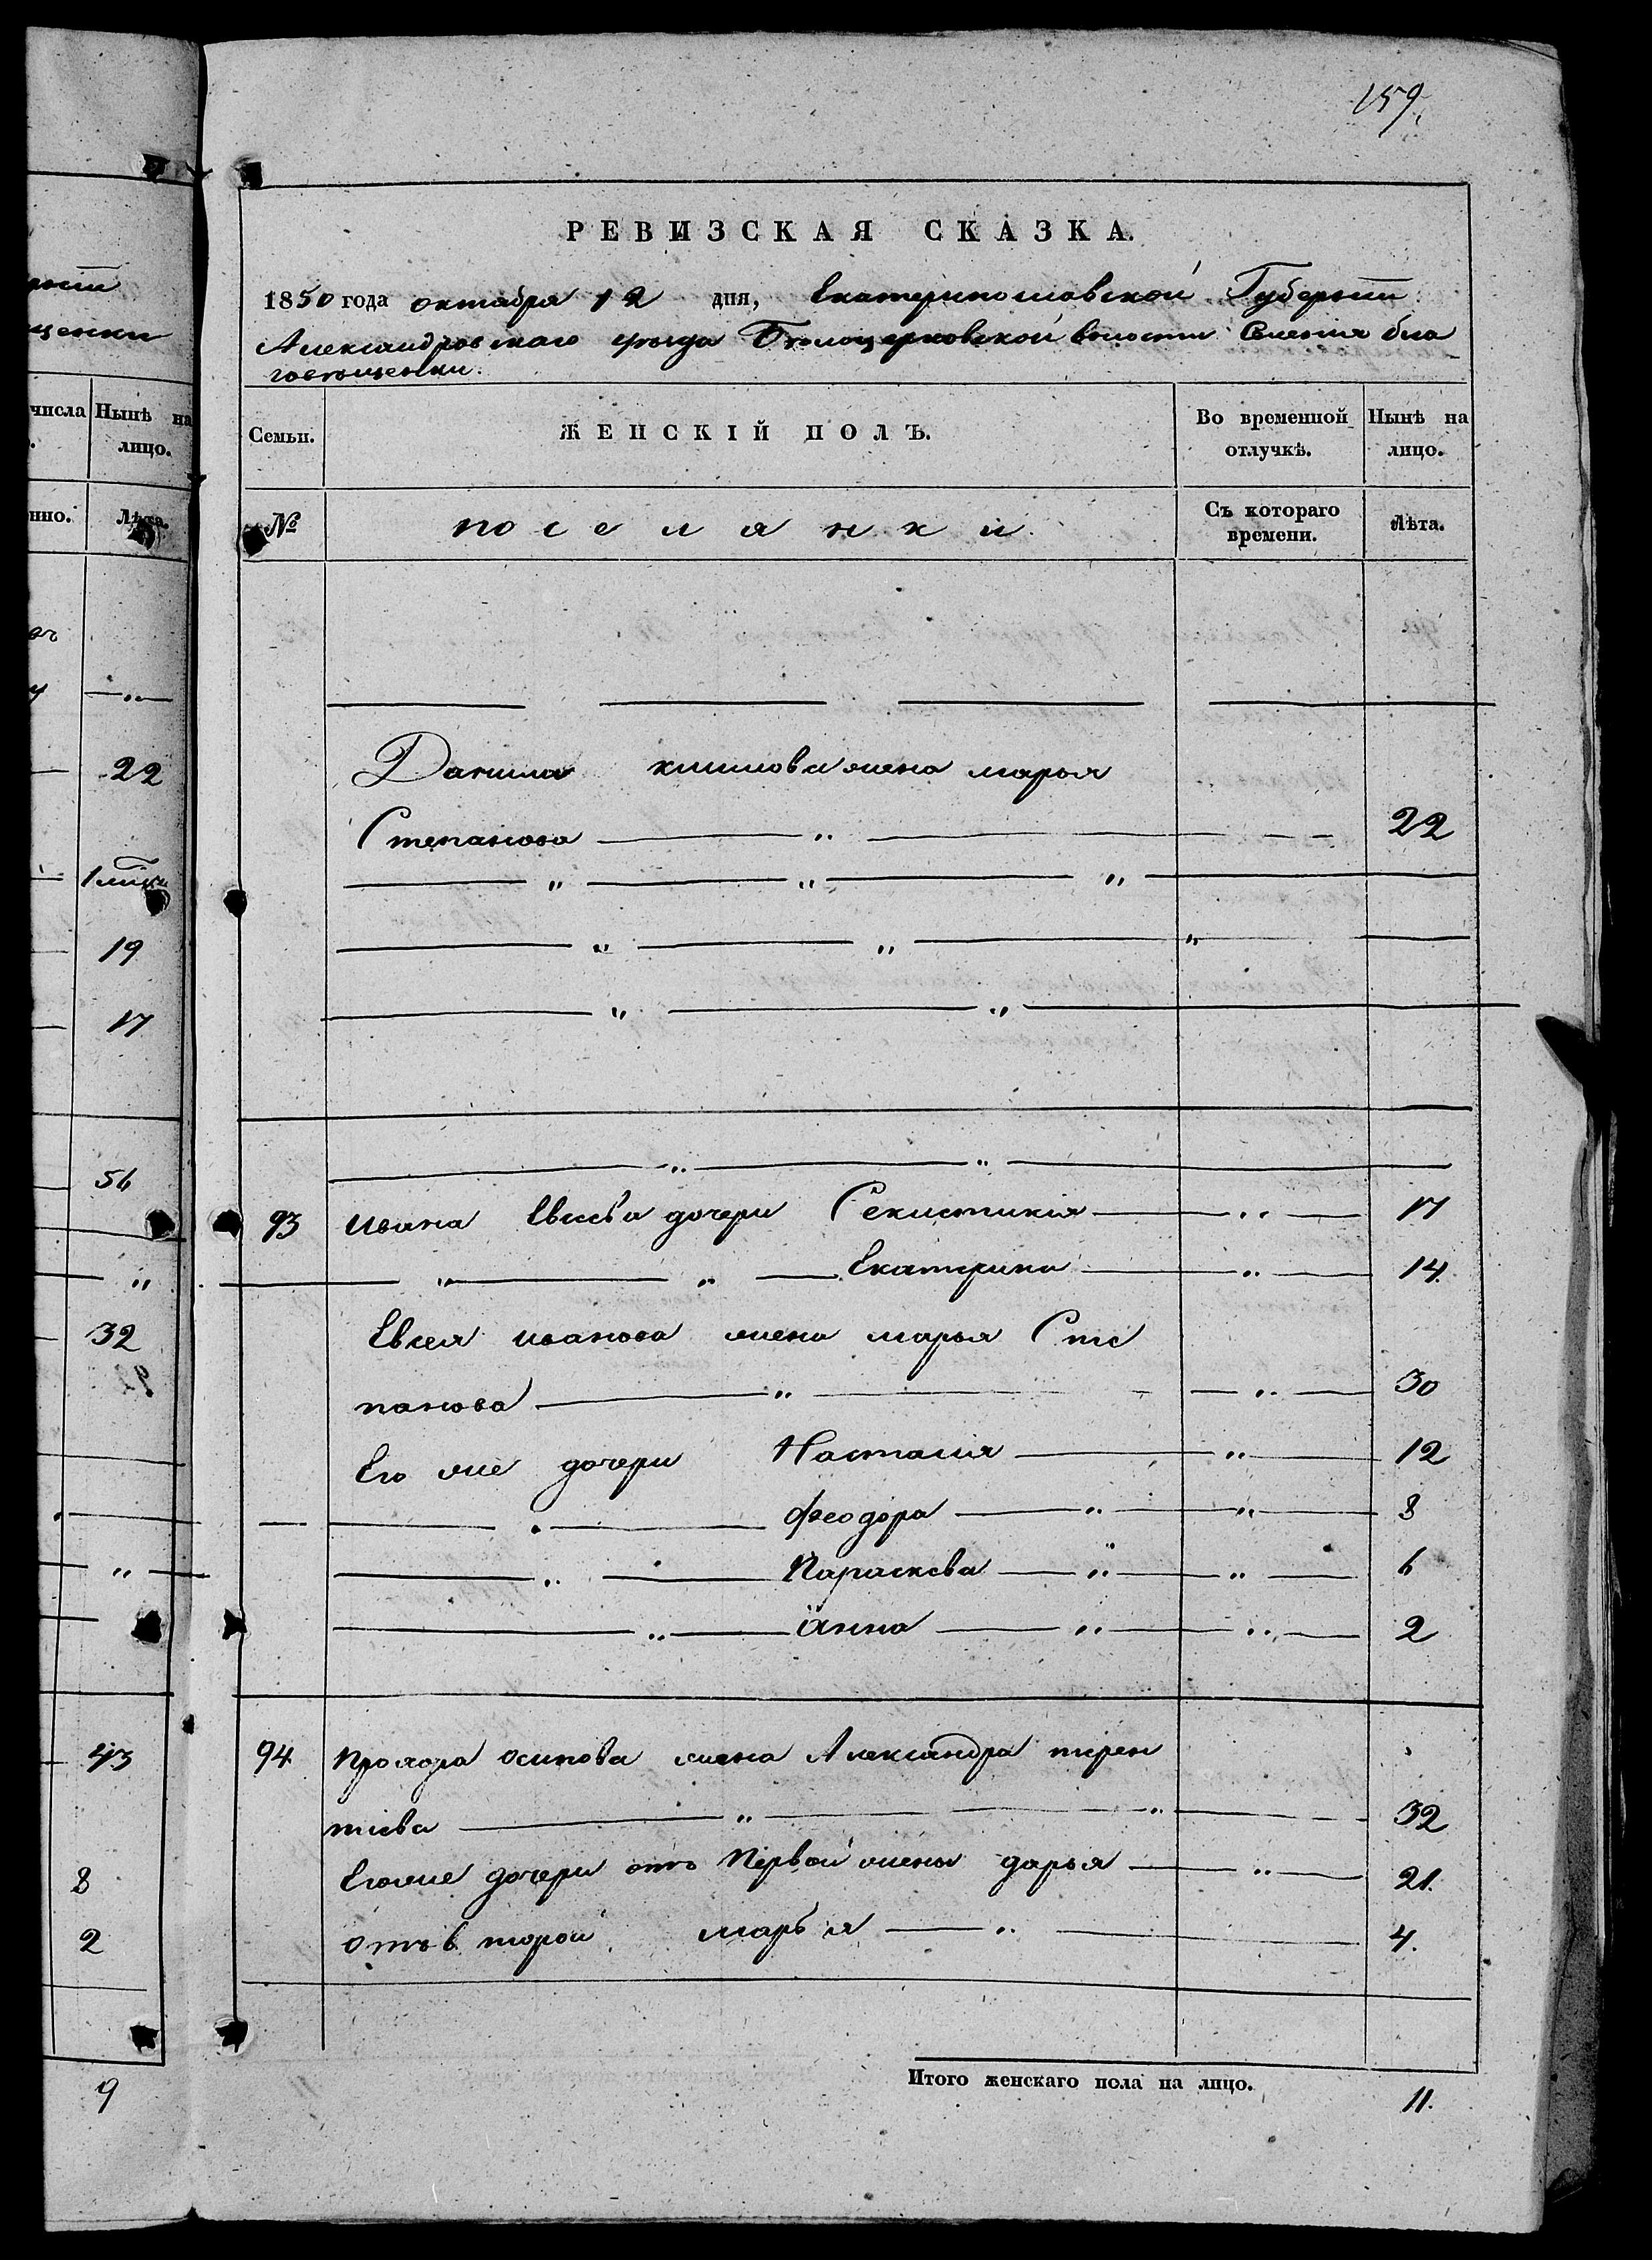 159.
РЕВИЗСКАЯ СКАЗКА.
1850 года октября 12 дня, Екатеринославской Губернии
Александровскаго уѣзда Бѣлоцерковской волости Селения Бла
говѣщенки.
числа Нынѣ на лицо.
Семьи. ЖЕНСКІЙ ПОЛЪ. Во временной отлучкѣ. Нынѣ на лицо.
нно. Лѣта.
№ поселянки. Съ котораго времени. Лѣта.
22
Данила климова жена марья
Степанова 22
19
17
56
93 Ивана Евсеѣва дочери Секлистикія 17
Екатерина 14.
32
Евсея иванова жена марья Сте
панова 30
Его же дочери Настасія 12
Феодора 8
Параскева 6
Анна 2
43
94 Прохора осипова жена Александра терен
тіева 32
8
Егоже дочери отъ Первой жены дарья 21.
2
отъ второй марья 4.
Итого женскаго пола на лицо. 11.
9